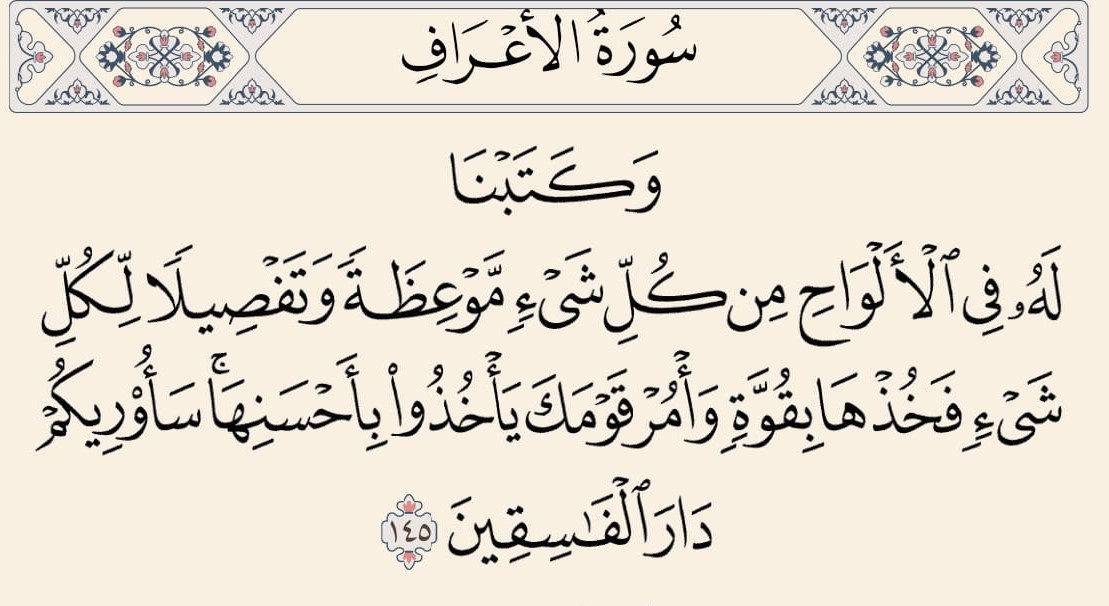 سُورَةُ الأَعْرَافِ
وَكَتَبْنَا
لَهُۥ فِى ٱلْأَلْوَاحِ مِن كُلِّ شَىْءٍ مَّوْعِظَةً وَتَفْصِيلًا لِّكُلِّ
شَىْءٍ فَخُذْهَا بِقُوَّةٍ وَأْمُرْ قَوْمَكَ يَأْخُذُوا۟ بِأَحْسَنِهَا ۚ سَأُو۟رِيكُمْ
دَارَ ٱلْفَـٰسِقِينَ ١٤٥